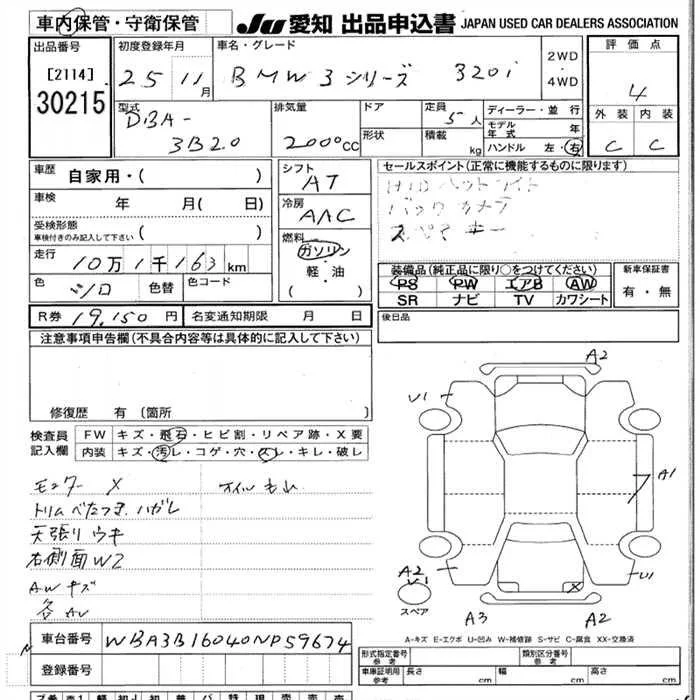 車内保管・守衛保管
JU 愛知 出品申込書 JAPAN USED CAR DEALERS ASSOCIATION
出品番号
[2114]
30215
初度登録年月
25 11月
車名・グレード
BMW 3シリーズ 320i
2WD
・
4WD
評価点
4
外装 内装
C C
型式
DBA-
3B20
排気量
2000cc
ドア
形状
定員
5人
積載
kg
ディーラー・並行
モデル年式 年
ハンドル 左・右
車歴
自家用・( )
車検
年 月( 日)
受検形態
車検付きのみ記入して下さい ( )
走行
10万1千163km
色
シロ
色替
色コード
シフト
AT
冷房
AAC
燃料
ガソリン
・
軽・油
( )
セールスポイント(正常に機能するものに限ります)
HIDヘッドライト
バックカメラ
スペアキー
装備品(純正品に限り○をつけてください)
PS PW エアB AW
SR ナビ TV カワシート
新車保証書
有・無
R券 19,150円
名変通知期限 月 日
後日品
注意事項申告欄(不具合内容等は具体的に記入して下さい)
修復歴 有 〔箇所
検査員
記入欄
FW キズ・飛石・ヒビ割・リペア跡・X要
内装 キズ・汚レ・コゲ・穴・スレ・キレ・破レ
モニター X
オイルもれ
トリムベたつき、ハガレ
天張りウキ
右側面W2
AWキズ
各AU
A2
U1
A1
U1
A2
U1
スペア
A3
A2
X
A-キズ E-エクボ U-凹み W-補修跡 S-サビ C-腐食 XX-交換済
車台番号
WBA3B16040NP59674
登録番号
形式指定番号
参考
類別区分番号
参考
車庫証明用
参考
長さ
cm
幅
cm
高さ
cm